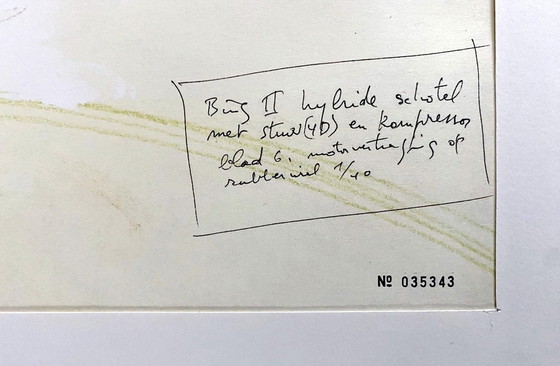 Bing II hybride schotel
met stuur(4D) en kompressor
blad 6. motorvertraging op
rubberwiel 1/40
Nº 035343